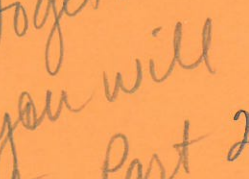 you will
Part 2